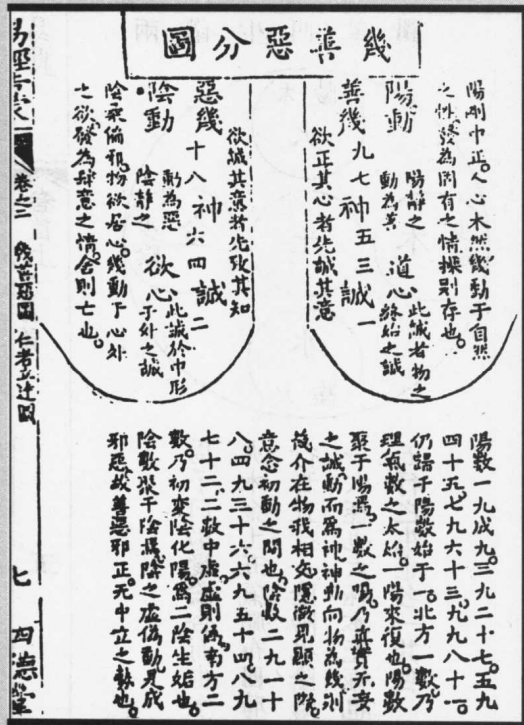 幾善惡分圖
陽剛中正人心本然幾動于自然
之性發為固有之情操則存也
陽動
陽靜之
動為善
道心
此誠者物之
終始之誠
善幾九七神五三誠一
欲正其心者先誠其意
欲誠其意者先致其知
惡幾十八神六四誠二
陰動
陰靜之
動為惡
欲心
此誠於中形
于外之誠
陰柔偏邪物欲居心幾動于心外
之欲發為肆意之情舍則亡也
陽數一九成九三九二十七五九
四十五七九六十三九九八十一
仍歸于陽數始于一北方一數乃
理氣數之太始一陽來復也陽數
聚于陽焉一數之陽乃真實无妄
之誠動而為神神動向物為幾則
幾介在物我相交隱微見顯之際
意念初動之間也陰數二九一十
八四九三十六六九五十四八九
七十二二數中虛虛則偽南方二
數乃初變陰化陽為二陰生姤也
陰數聚于陰焉陰之虛偽動見成
邪惡故善惡邪正无中立之勢也
卷之三
幾善惡圖
仁者立達圖
七
四德堂